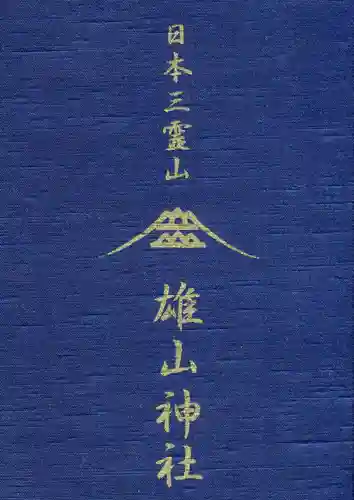 日本三靈山
雄山神社